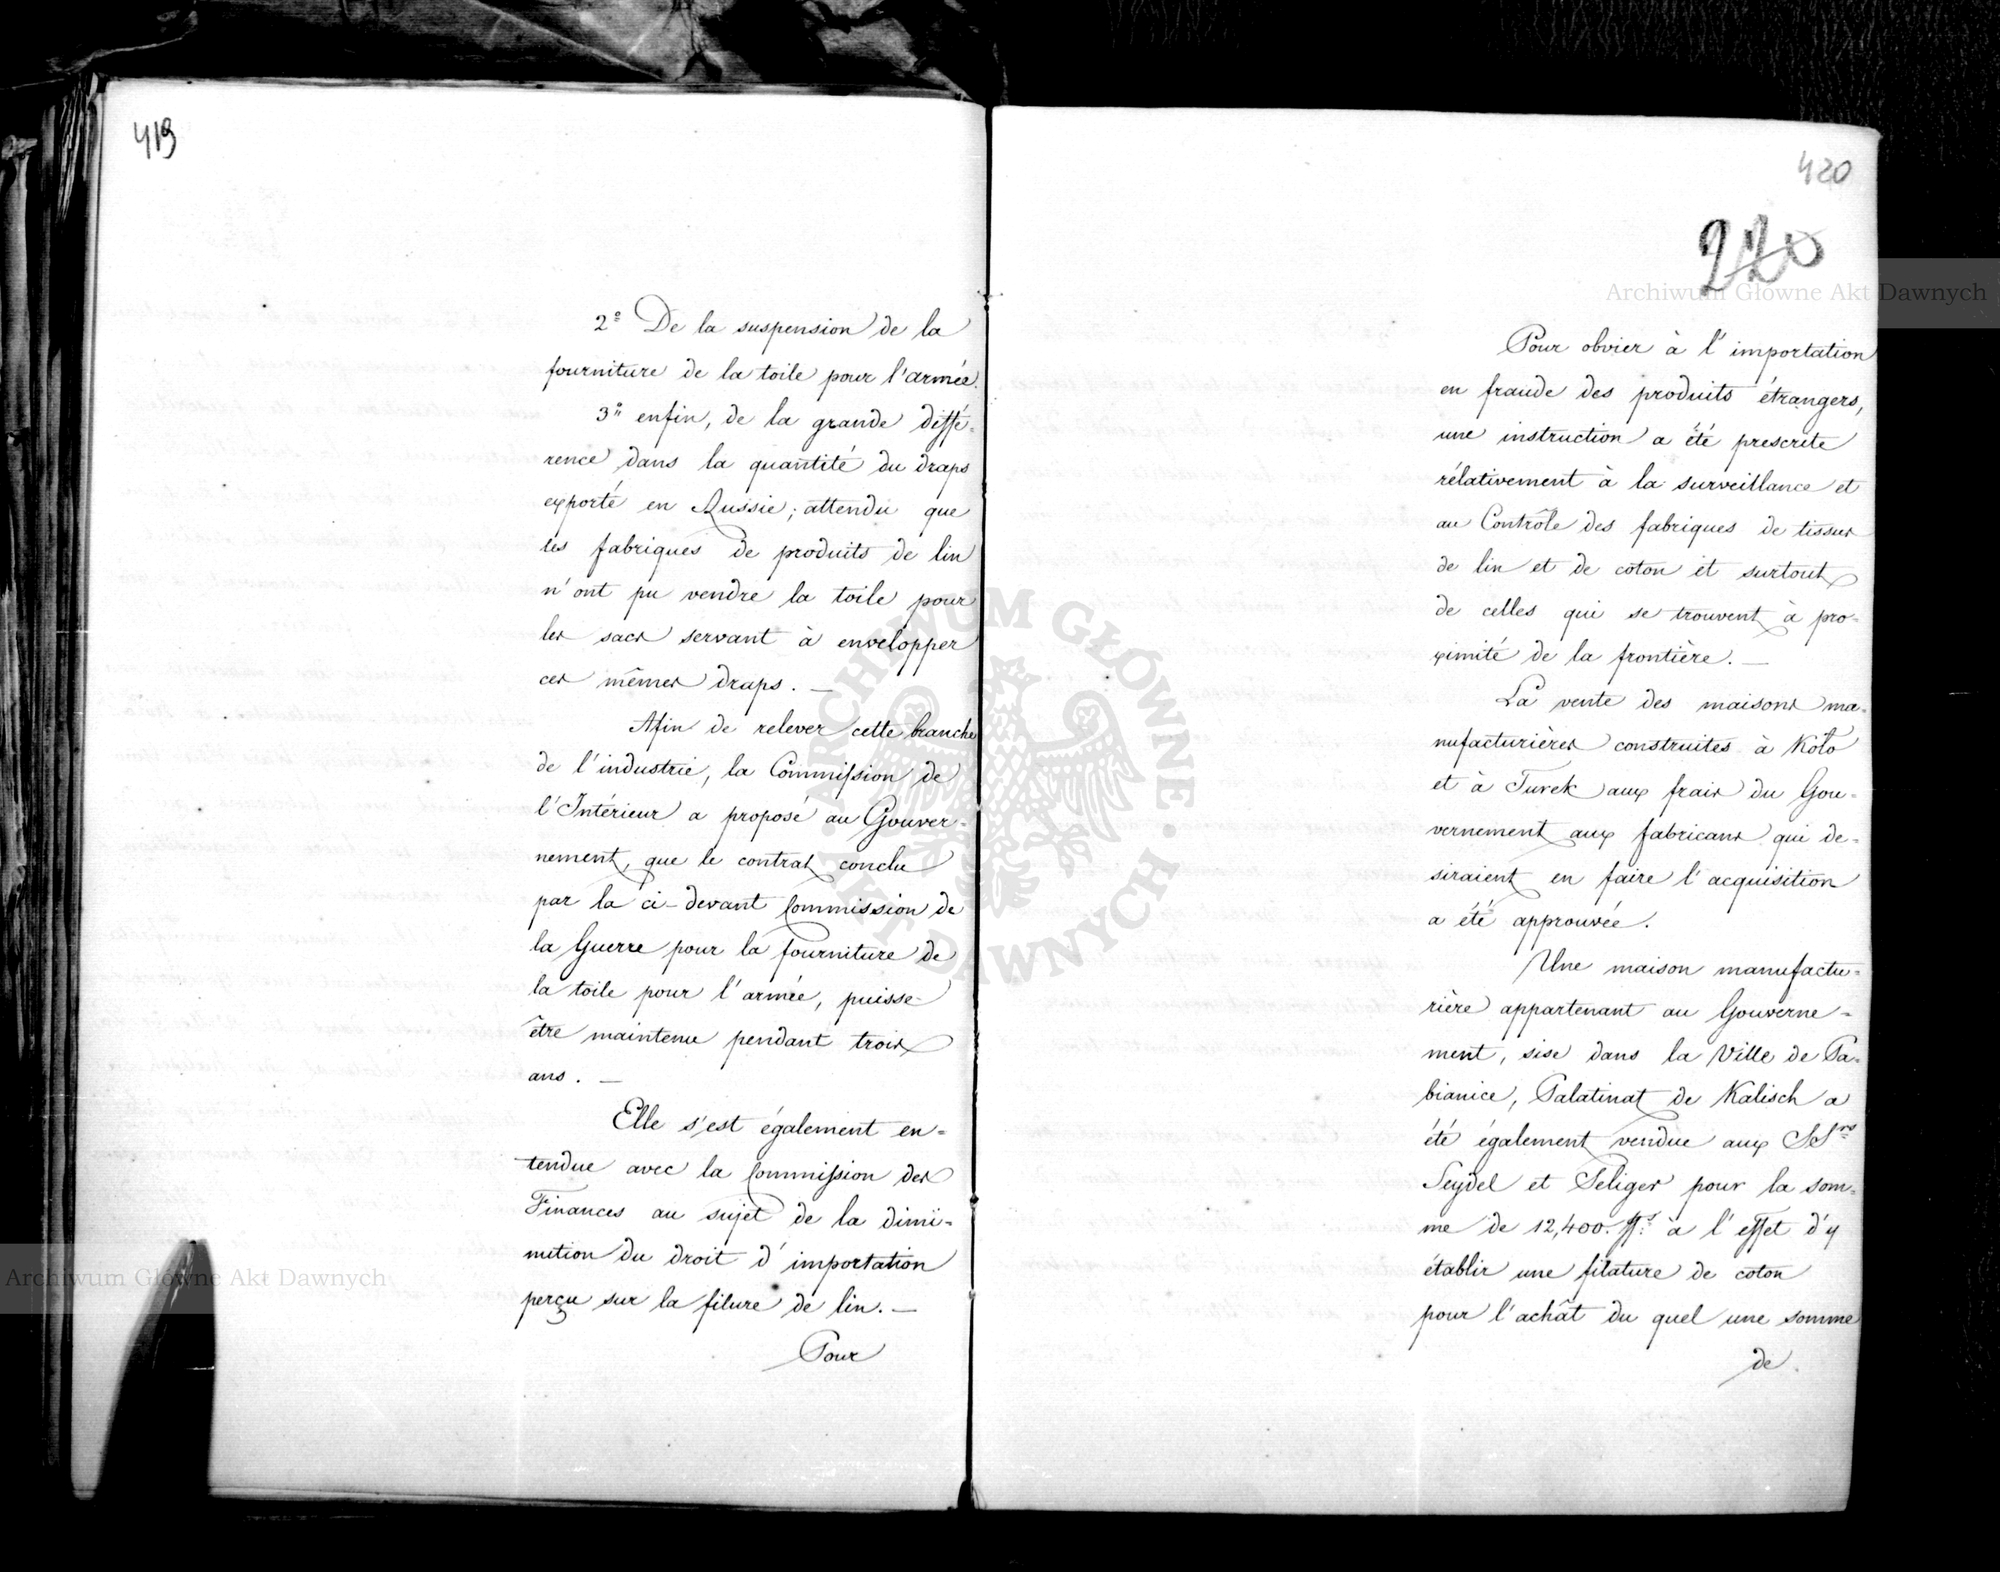 419
2º De la suspension de la
fourniture de la toile pour l'armée.
3º enfin, de la grande diffé-
rence dans la quantité du draps
exporté en Russie; attendu que
les fabriques de produits de lin
n'ont pu vendre la toile pour
les sacs servant à envelopper
ces mêmes draps. —
Afin de relever cette branche
de l'industrie, la Commission de
l'Intérieur a proposé au Gouver-
nement, que le contrat conclu
par la ci-devant Commission de
la Guerre pour la fourniture de
la toile pour l'armée, puisse
être maintenu pendant trois
ans. —
Elle s'est également en-
tendue avec la Commission des
Finances au sujet de la dimi-
nution du droit d'importation
perçu sur la filure de lin. —
Pour
420
220
Pour obvier à l'importation
en fraude des produits étrangers,
une instruction a été prescrite
rélativement à la surveillance et
au Contrôle des fabriques de tissus
de lin et de coton et surtout
de celles qui se trouvent à pro-
ximité de la frontière. —
La vente des maisons ma-
nufacturières construites à Koło
et à Turek aux frais du Gou-
vernement aux fabricans qui de-
siraient en faire l'acquisition
a été approuvée.
Une maison manufactu-
rière appartenant au Gouverne-
ment, sise dans la Ville de Pa-
bianice, Palatinat de Kalisch a
été également vendue aux SSrs
Seydel et Seliger pour la som-
me de 12,400. fls à l'effet d'y
établir une filature de coton
pour l'achât du quel une somme
de
Archiwum Główne Akt Dawnych
Archiwum Główne Akt Dawnych
ARCHIWUM GŁÓWNE · AKT DAWNYCH ·